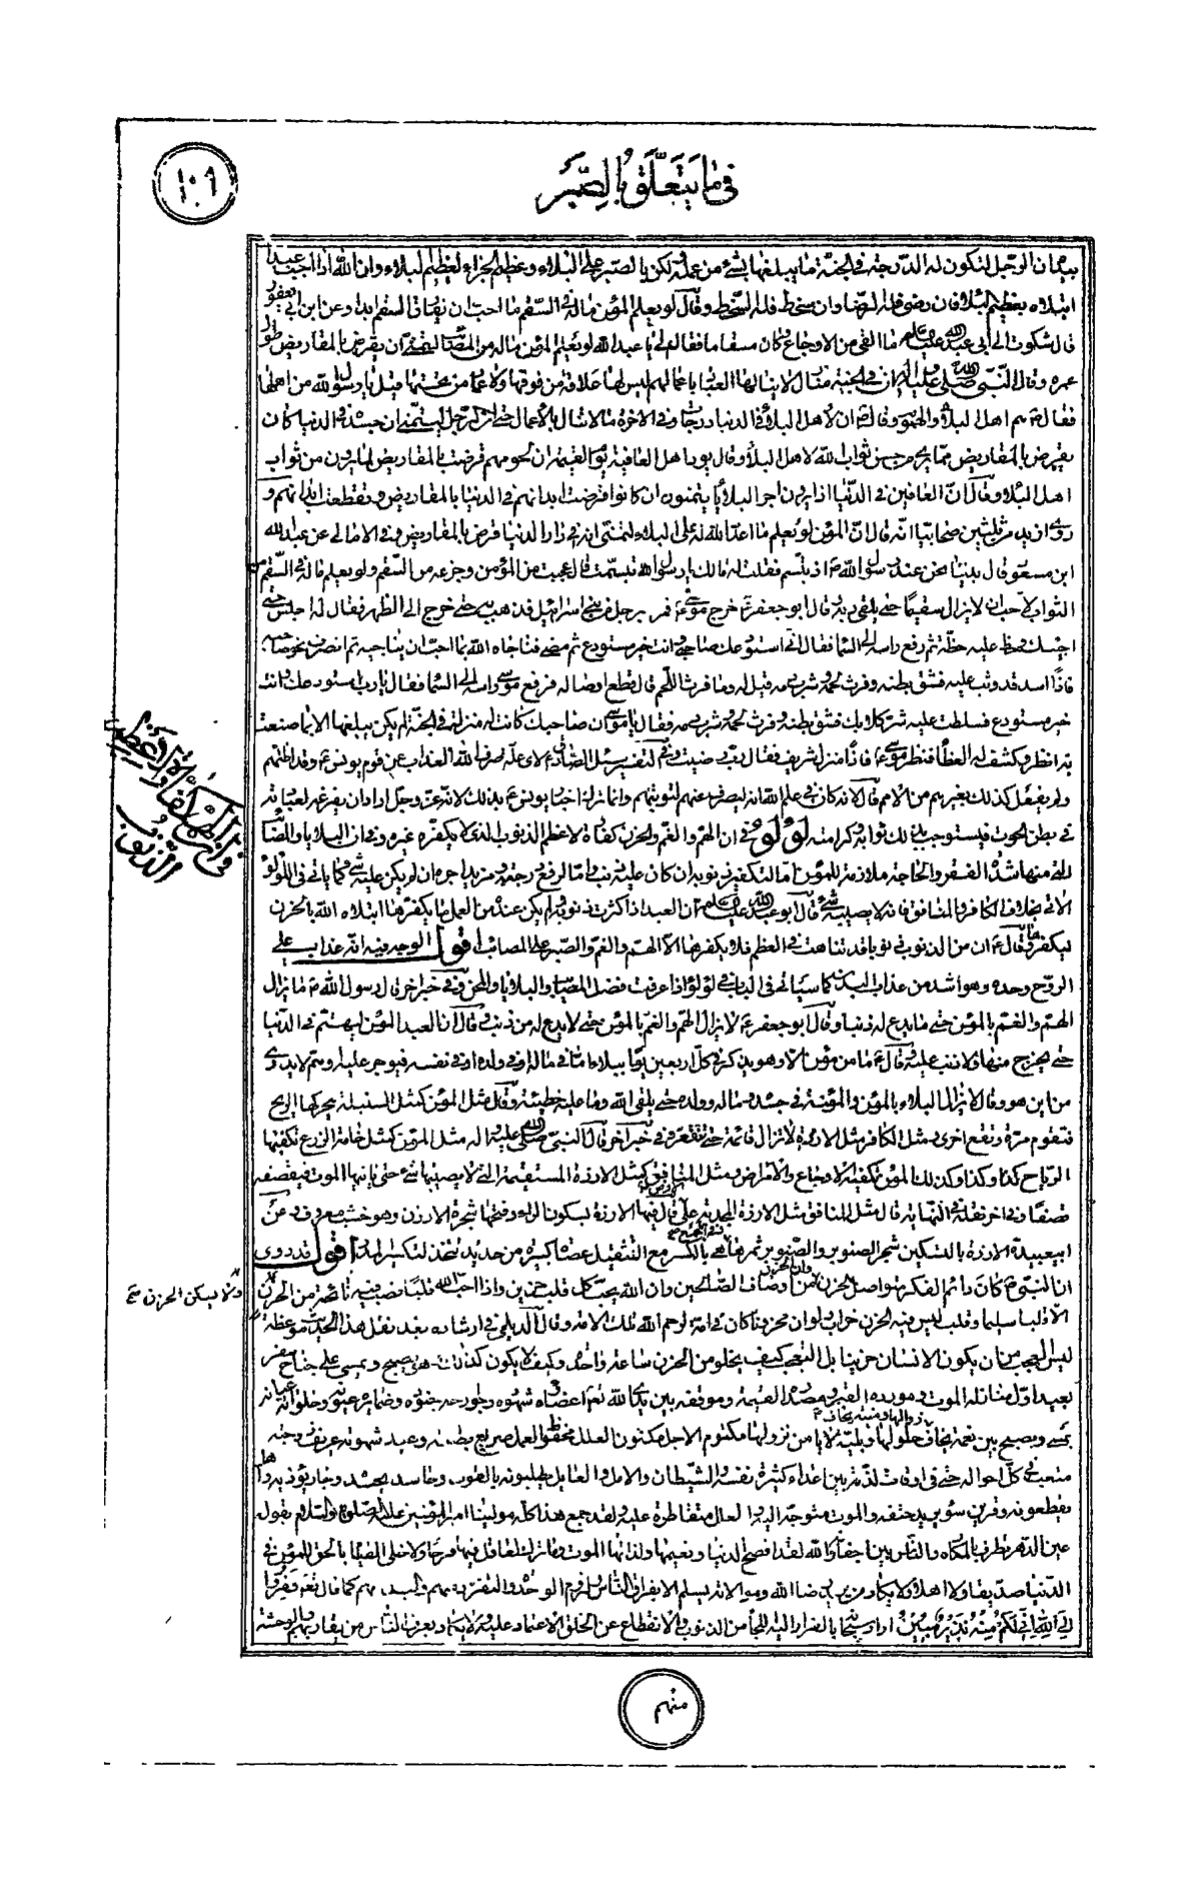 ١٠٩
في ما يتعلّق بالصّبر
بيده ان الرجل لتكون له الدرجة في الجنة ما يبلغها بشئ من عمله لكن بالصبر على البلاء وعظيم الجزاء لعظيم البلاء وان الله اذا احب عبدا
ابتلاه بعظيم البلاء فان رضى فله الرضا وان سخط فله السخط وقال لو يعلم المؤمن ماله في السقم ما احب ان يفارق السقم ابدا وعن ابن ابي يعفور
قال شكوت الى ابي عبد الله عليه السلام ما القى من الاوجاع وكان مسقاما فقال لي يا عبد الله لو يعلم المؤمن ماله من المصائب لتمنى ان يقرض بالمقاريض طول
عمره وقال النبي صلى الله عليه واله ان في الجنة منازل لا ينالها العباد باعمالهم ليس لها علاقة من فوقها ولا عماد من تحتها قيل يا رسول الله من اهلها
فقال هم اهل البلاء والهموم وقال ان لاهل البلاء في الدنيا درجات وفي الاخرة ما لا تنال بالاعمال حتى ان الرجل ليتمنى ان جسده في الدنيا كان
يقرض بالمقاريض مما يرى من حسن ثواب الله لاهل البلاء وقال يود اهل العافية يوم القيمة ان لحومهم قرضت بالمقاريض لما يرون من ثواب
اهل البلاء وقال ان العافين في الدنيا اذا يرون اجر البلايا يتمنون ان كانوا قرضت ابدانهم في الدنيا بالمقاريض وتقطعت ابدانهم و
روى ازيد من ثلثين صحابيا انه قال ان المؤمن لو يعلم ما اعد الله له على البلاء لتمنى انه في دار الدنيا قرض بالمقاريض وفي الامالي عن عبد الله
ابن مسعود قال بينا نحن عند رسول الله اذ تبسم فقلت له مالك يا رسول الله تبسمت قال عجبت من المؤمن وجزعه من السقم ولو يعلم ماله في السقم من
الثواب لاحب ان لا يزال سقيما حتى يلقى ربه قال ابو جعفر خرج موسى فمر برجل من بني اسرائيل فذهب به حتى خرج الى الظهر فقال له اجلس حتى
اجيئك وخط عليه خطة ثم رفع راسه الى السماء فقال اني استودعتك صاحبي وانت خير مستودع ثم مضى فناجاه الله بما احب ان يناجيه ثم انصرف نحو صاحبه
فاذا اسد قد وثب عليه فشق بطنه وفرث لحمه وشرب دمه قيل له وما فرث اللحم قال قطع اوصاله فرفع موسى راسه الى السماء فقال يا رب استودعتك وانت
خير مستودع فسلطت عليه شر كلابك فشق بطنه وفرث لحمه وشرب دمه فقال يا موسى ان صاحبك كانت له منزلة في الجنة لم يكن يبلغها الا بما صنعت
به انظر وكشف له الغطاء فنظر موسى فاذا منزل شريف فقال رب رضيت وفي تفسير سئل الصادق لاى علة صرف الله العذاب عن قوم يونس وقد اظلهم
ولم يفعل كذلك بغيرهم من الامم قال لانه كان في علم الله انه ليصرفه عنهم لتوبتهم وانما ترك اخبار يونس بذلك لانه عز وجل اراد ان يفرغه لعبادته
في بطن الحوت فيستوجب بذلك ثوابه وكرامته لؤلؤ في ان الهم والغم والحزن كفارة لاعظم الذنوب الذي لا يكفره غيره وفي ان البلايا والمصائب
الاتي بخلاف الكافر والمنافق فانه لا يصيبه شئ قال ابو عبد الله عليه السلام ان العبد اذا كثرت ذنوبه ولم يكن عنده من العمل ما يكفرها ابتلاه الله بالحزن
ليكفرها وقال ان من الذنوب ذنوبا قد تناهت في العظم فلا يكفرها الا الهم والغم والصبر على المصائب اقول الوجه فيه انه عذاب على
الروح وحده وهو اشد من عذاب البدن كما سيأتي في الباب في لؤلؤ اذا عرفت فضل المصائب والبلايا والمحن وفي خبر اخر قال رسول الله ما يزال
الهم والغم بالمؤمن حتى ما يدع له ذنبا وقال ابو جعفر لا يزال الهم والغم بالمؤمن حتى لا يدع له من ذنب وقال ان العبد المؤمن ليهتم في الدنيا
حتى يخرج منها ولا ذنب عليه وقال ما من مؤمن الا وهو يذكر في كل اربعين يوما ببلاء اما في ماله او في ولده او في نفسه فيوجر عليه او هم لا يدرى
من اين هو وقال لا يزال البلاء بالمؤمن والمؤمنة في جسده وماله وولده حتى يلقى الله وما عليه خطيئة وقال مثل المؤمن كمثل السنبلة يحركها الريح
فتقوم مرة وتقع اخرى ومثل الكافر مثل الارزة لا تزال قائمة حتى تنقعر وفي خبر اخر قال النبي صلى الله عليه واله مثل المؤمن كمثل خامة الزرع تكفئها
الرياح كذا وكذا وكذلك المؤمن تكفئه الاوجاع والامراض ومثل المنافق كمثل الارزة المستقيمة التي لا يصيبها شئ حتى يأتيها الموت فيقصفه
قصفا وفي اخر نقله في النهاية قال مثل المنافق مثل الارزة المجدية على الارض قال فيها الارزة بسكون الراء وفتحها شجرة الارزن وهو خشب معروف وعن
ابي عبيدة الارزة بالتسكين شجر الصنوبر والصنوبر ثمرها بالكسر مع التثقيل عصاة كبيرة من حديد تتخذ لتكسير المدر اقول قد روى
ان النبي كان دائم الفكر متواصل الحزن وان الحزن من اوصاف الصالحين وان الله يحب كل قلب حزين واذا احب الله قلبا نصب فيه نائحة من الحزن
ولا يسكن الحزن
الا قلبا سليما وقلب ليس فيه الحزن خراب ولو ان محزونا كان في امة لرحم الله تلك الامة وقال الديلمي في ارشاده بعد نقل هذا الحديث موعظة
ليس العجب من ان يكون الانسان حزينا بل العجب كيف يخلو من الحزن ساعة واحدة وكيف لا يكون كذلك وهو يصبح ويمسي على جناح سفر
بعيد اول منازله الموت ومورده القبر ومصدره القيمة وموقفه بين يدي الله
يمسي ويصبح بين نعمة يخاف زوالها ومنية يخاف حلولها وبلية لا يأمن نزولها مكتوم الاجل مكنون العلل محفوظ العمل صريع بطنته وعبد شهوته
متعب في كل احواله حتى في اوقات لذته بين اعداء كثيرة نفسه والشيطان والامل والعائل يطلبونه بالقوت وحاسد يحسده وجار يؤذيه واهل
يقطعونه وقرين سوء يريد حتفه والموت متوجه اليه والعلل متقاطرة عليه لقد جمع هذا كله مولينا امير المؤمنين عليه الصلوة والسلام بقوله
عين الدهر تطرف بالمكاره والناس بين اجفانه والله لقد افصح الدنيا ونعيمها ولذاتها الموت وما ترك لعاقل فيها فرحا ولا خلى القيام بالحق للمؤمن في
الدنيا صديقا ولا اهلا ولا يكاد من يريد رضا الله وموالاته يسلم الا بفراق الناس ولزوم الوحدة والتفرد منهم والبعد منهم كما قال تعالى ففروا
الى الله اني لكم منه نذير مبين اراد سبحانه بالفرار اليه اللجأ من الذنوب والانقطاع عن الخلق والاعتماد عليه
منهم